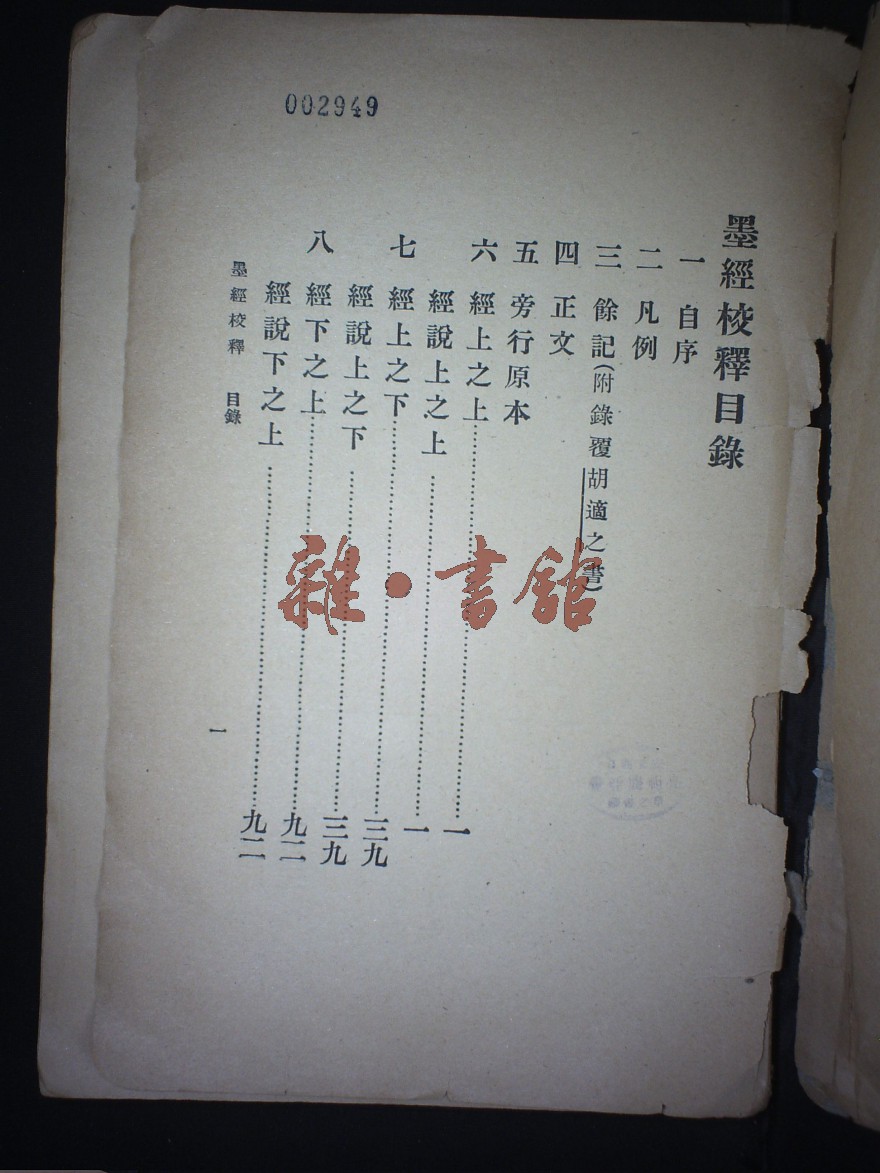 002949
墨經校釋目錄
一 自序
二 凡例
三 餘記(附錄覆胡適之書)
四 正文
五 旁行原本
六 經上之上……一
經說上之上……一
七 經上之下……三九
經說上之下……三九
八 經下之上……九二
經說下之上……九二
墨經校釋 目錄
一
雜·書館